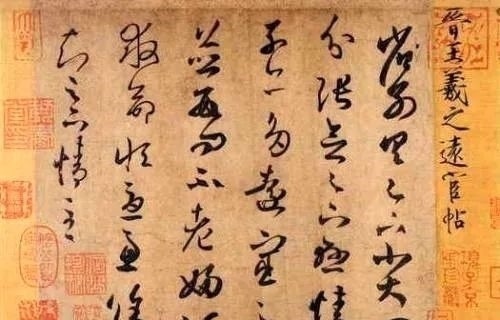 晉王羲之遠宦帖
省別具足下小大
分張念足下懸情
子亦多遠宦足
並數問不老婦
救命恒憂慮餘
知足下情至